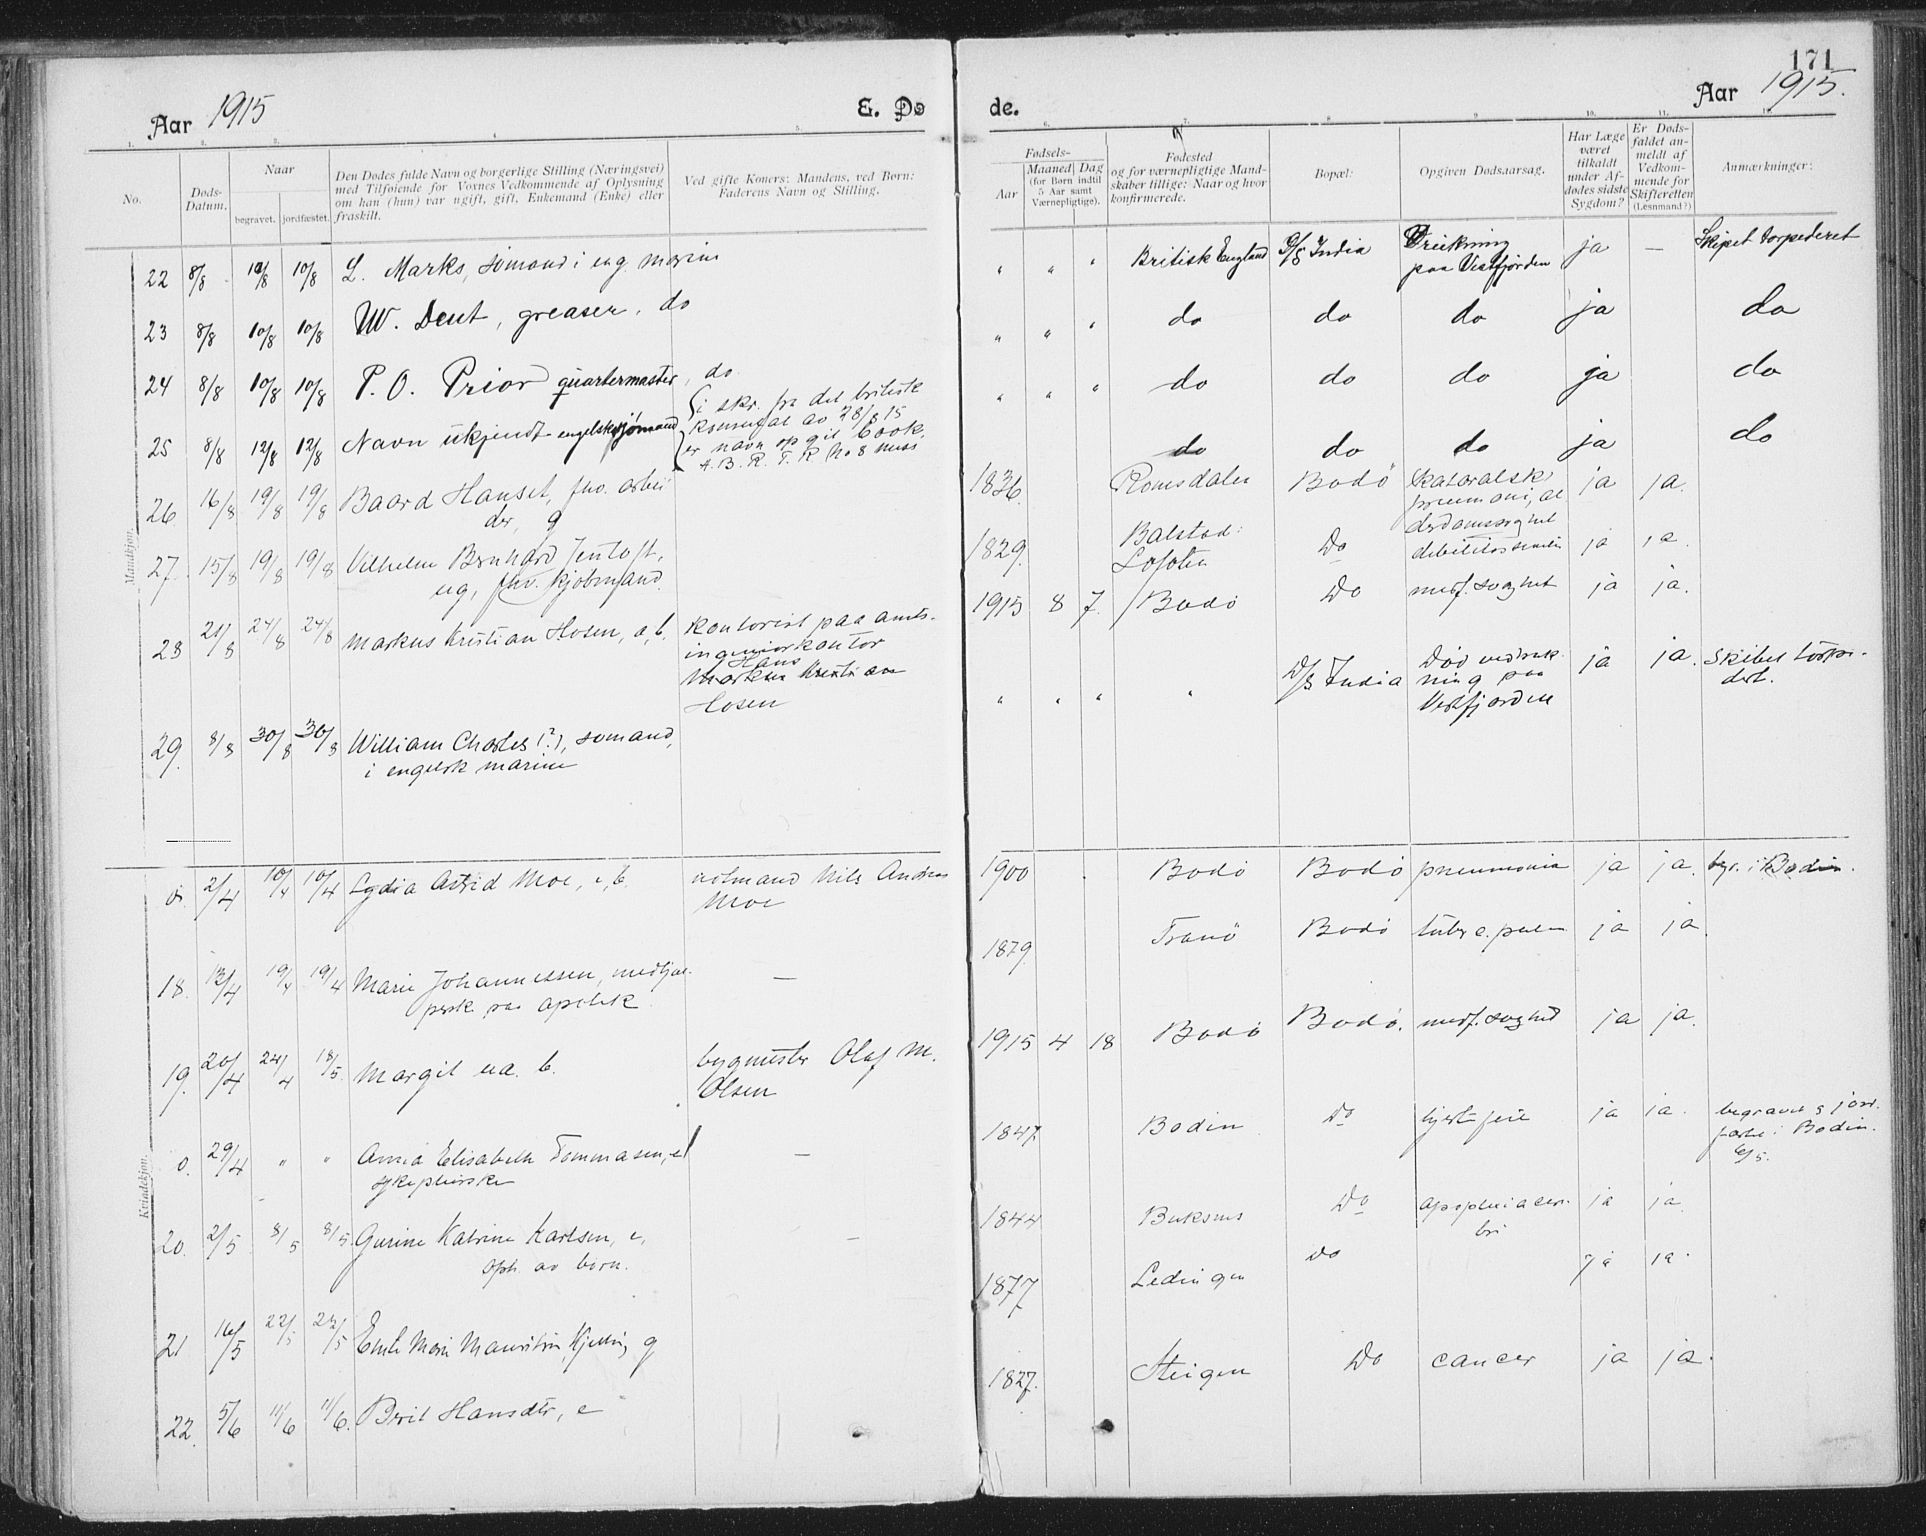 171
Aar 1915
E. Dø
de.
Aar 1915.
1. 2. 3. 4. 5. 6. 7. 8. 9. 10. 11. 12.
No.
Døds-
Datum.
Naar
begravet. jordfæstet.
Den Dødes fulde Navn og borgerlige Stilling (Næringsvei)
med Tilføiende for Voxnes Vedkommende af Oplysning
om han (hun) var ugift, gift, Enkemand (Enke) eller
fraskilt.
Ved gifte Koners: Mandens, ved Børn:
Faderens Navn og Stilling.
Fødsels-
Aar Maaned Dag
(for Børn indtil
5 Aar samt
Værnepligtige).
Fødested
og for værnepligtige Mand-
skaber tillige: Naar og hvor
konfirmerede.
Bopæl:
Opgiven Dødsaarsag.
Har Læge
været
tilkaldt
under Af-
dødes sidste
Sygdom?
Er Døds-
faldet an-
meldt af
Vedkom-
mende for
Skifteretten
(Lensmand?)
Anmærkninger:
Mandkjøn.
22 8/8 10/8 10/8 L. Marks, sømand i eng. marine " " " Britisk England D/S India Drukning ja — Skipet torpederet
paa Vestfjorden
23 8/8 10/8 10/8 W. Dent, greaser, do " " " do do do ja do
24 8/8 10/8 10/8 P. O. Prior quartermaster, do " " " do do do ja do
25 8/8 12/8 12/8 Navn ukjendt engelsk sjømand do do do ja do
i skr. fra det britisk
konsulat av 28/8 15
er navn opgit Cook,
A. B. R. F. R No 8
26 16/8 19/8 19/8 Baard Hanset, fhv. arbei 1836 Romsdalen Bodö katoralsk ja ja.
der, g
27. 15/8 19/8 19/8 Vilhelm Bernhard Jentoft, 1829. Balstad: Do debilitas senilis ja ja
ug, fhv. kjøbmand. Lofoten
28 21/8 24/8 24/8 Markus Kristian Hosen, a, b. kontorist paa amts- 1915 8 7. Bodö Do medf. svaghet ja ja.
ingeniørkontor
Hans
Markus Kristian
Hosen
29. 8/8 30/8 30/8 William Charles (?), sømand, " " " D/S India Død ved druk- ja ja. Skibet torpe-
i engelsk marine ning paa dert.
Vestfjorden
Kvindekjøn.
0. 2/4 10/4 10/4 Lydia Astrid Moe, e, b. notmand Nils Andreas 1900 Bodö Bodö pneumonia ja ja. bgr. i Bodin.
Moe
18. 13/4 19/4 19/4 Marie Johannessen, medhjæl- — 1879. Tranö Bodö tuberc. pulm ja ja
perske paa apotek.
19. 20/4 24/4 18/5. Margit ua. b. bygmester Olaf M. 1915 4 18 Bodö Bodö. medf. svaghed ja ja.
Olsen
0. 29/4 " " Anna Elisabeth Tommasen, e — 1847 Bodin Do hjertefeil ja ja. begravet & jord-
sykepleierske fæstet i Bodin.
6/5.
20. 2/5 8/5 8/5 Gurine Katrine Karlsen, e, — 1844 Buksnes Do apoplexia cere- ja ja
oph. av børn. bri
21 16/5 22/5 22/5 Emilie Marie Mauritsine Kjelling g 1877 Lødingen Do ja ja.
22. 5/6 11/6 11/6. Berit Hansdtr, e 1827. Steigen Do cancer ja ja.